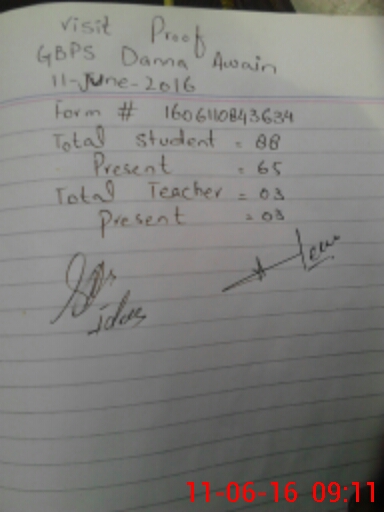 visit Proof
GBPS Danna Awain
11-June-2016
Form # 1606110843634
Total student = 88
Present = 65
Total Teacher = 03
Present = 03
11-06-16 09:11